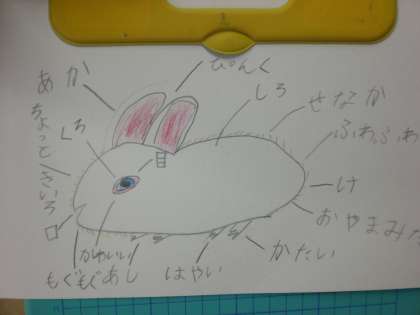 あか
ぴんく
しろ
せなか
ふわふわ
ちょっときいろ
くろ
目
け
口
かわいい
かたい
もぐもぐ
あし
はやい